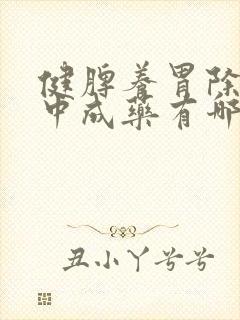 健脾养胃除
中成藥有哪
丑小丫兮兮